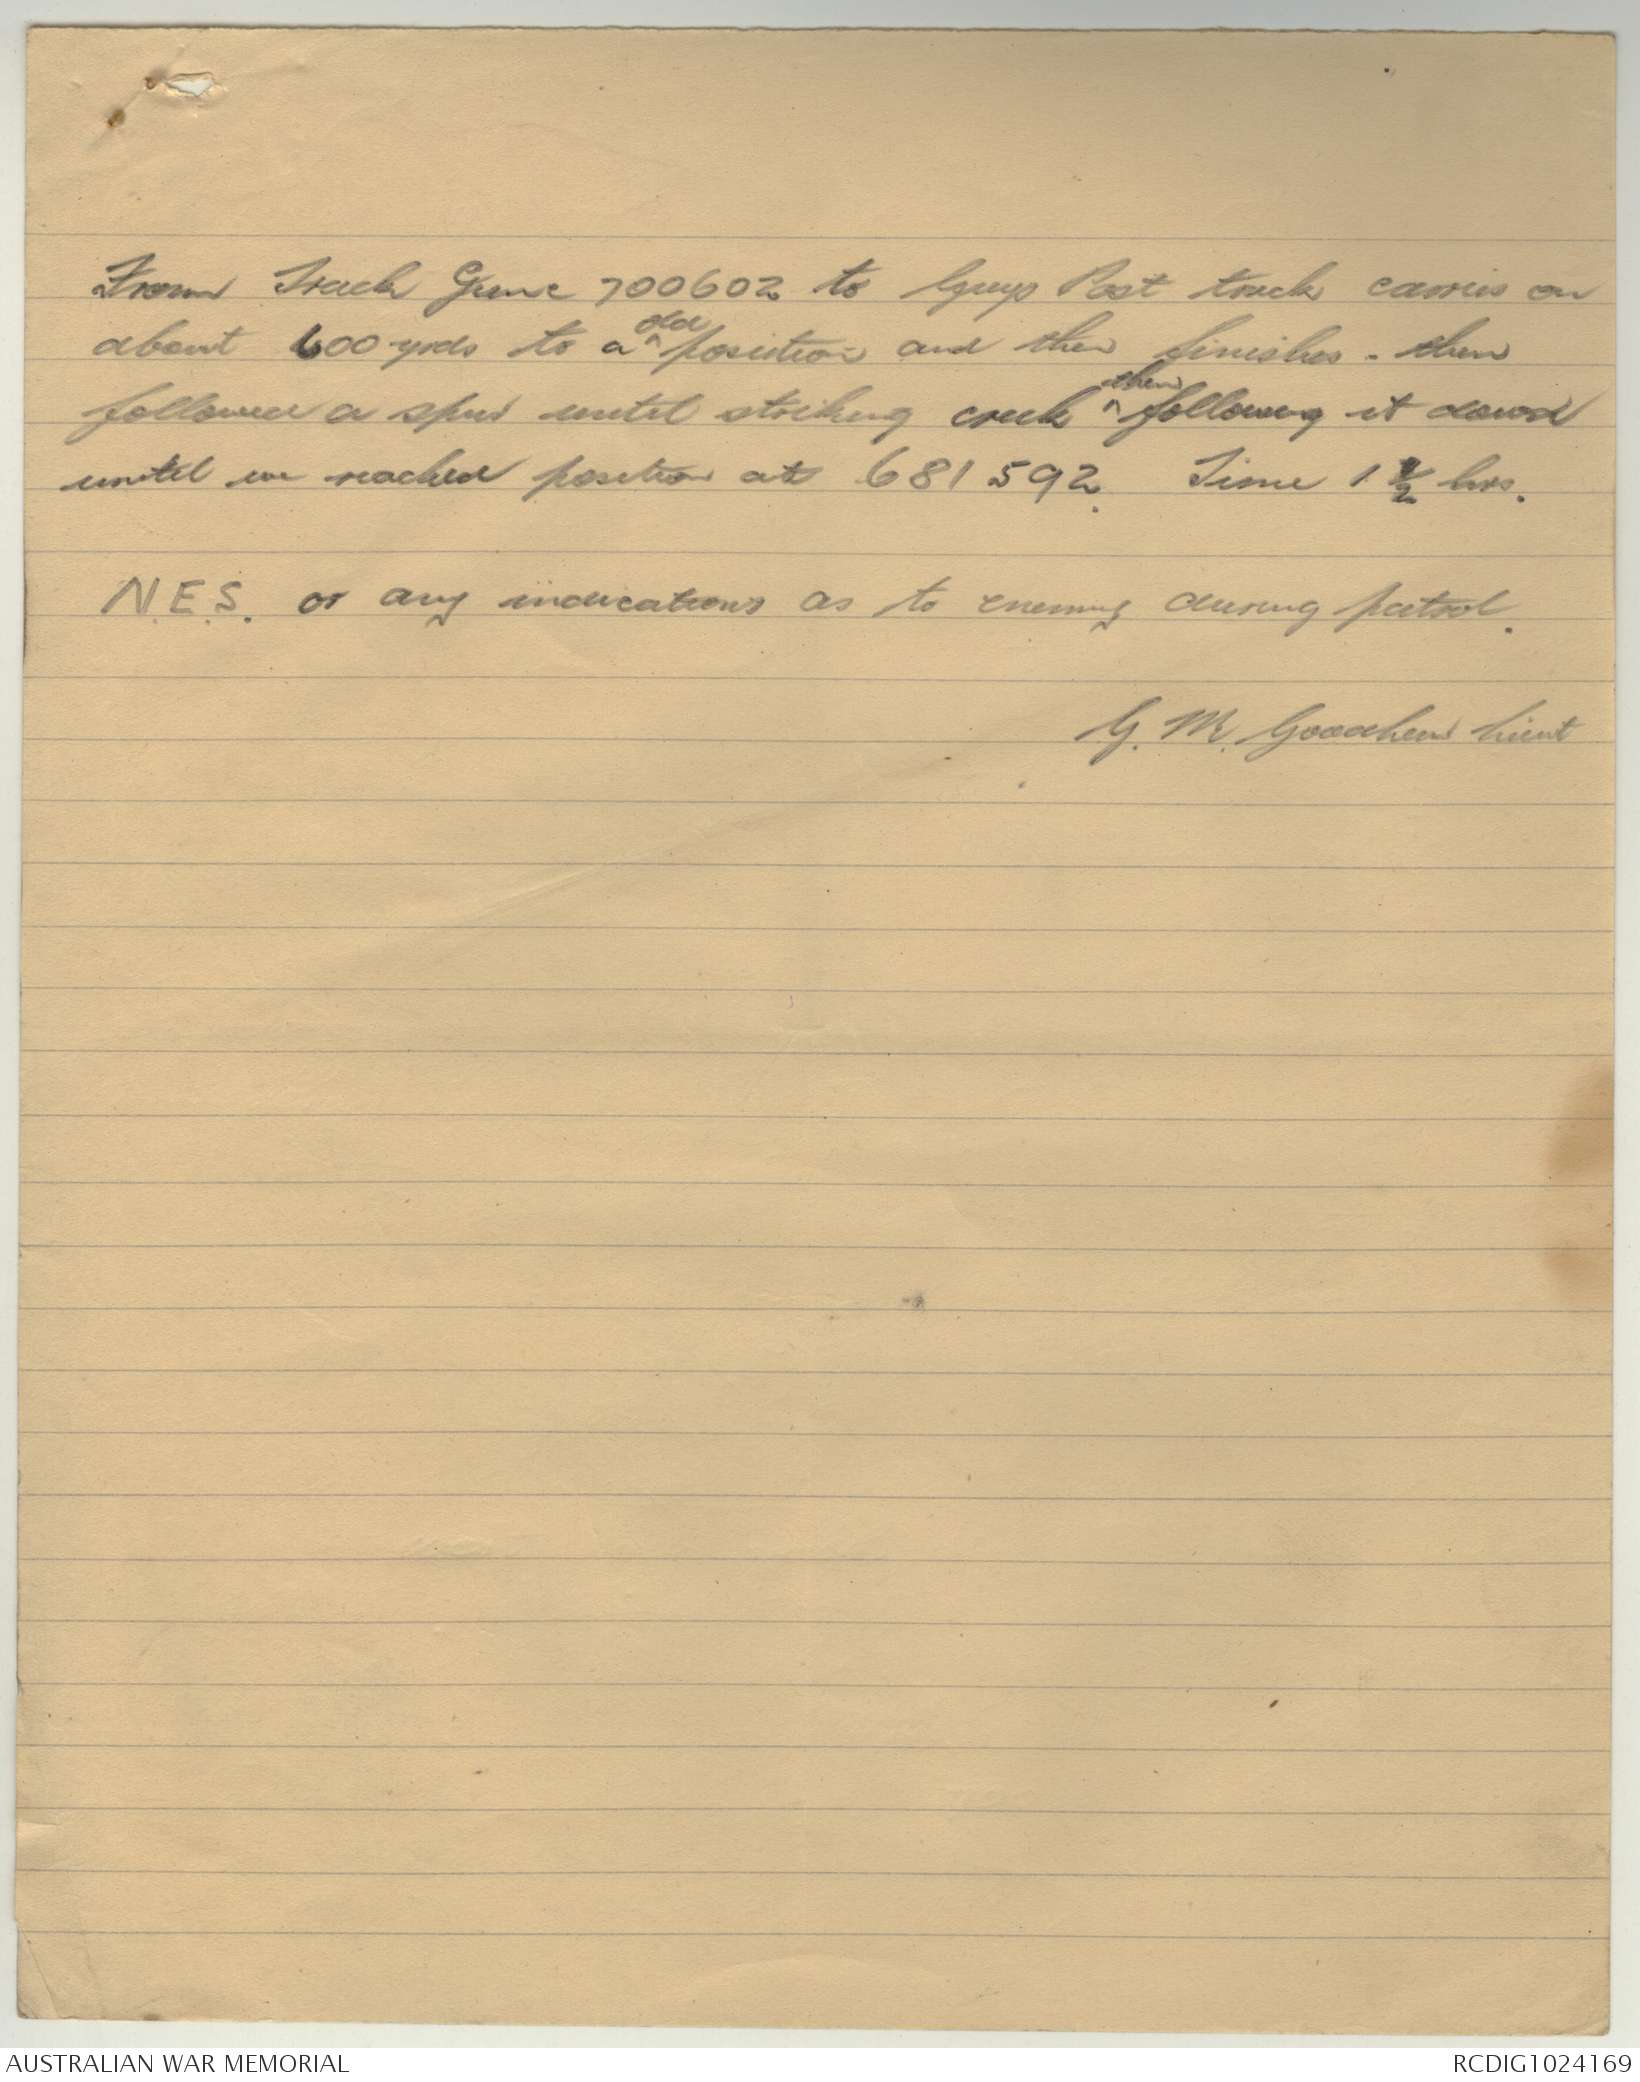 From Track June 700602 to Guys Post track carries on
about 600 yrds to a ^old position and then finishes - then
followed a spur until striking creek ^then following it down
until we reached position at 681592. Time 1 1/2 hrs.
N.E.S. or any indications as to enemy during patrol.
G. M. Lieut
AUSTRALIAN WAR MEMORIAL
RCDIG1024169